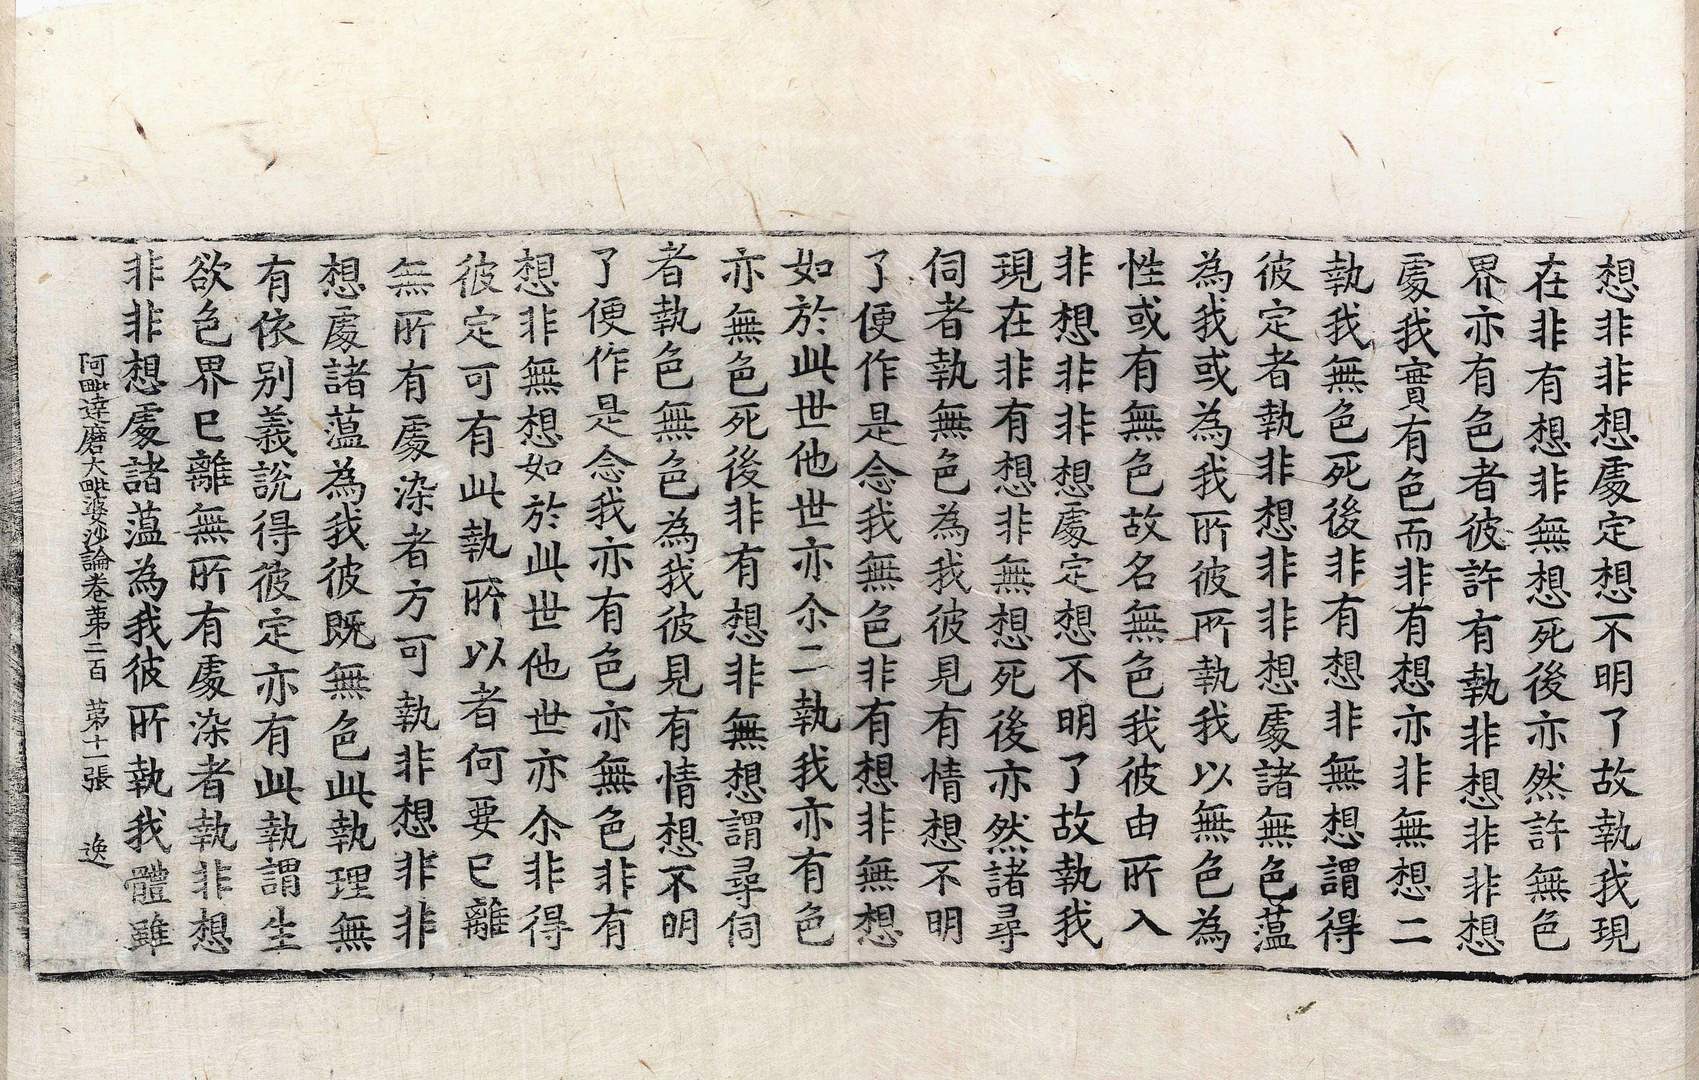 想非非想處定想不明了故執我現
在非有想非無想死後亦然許無色
界亦有色者彼許有執非想非非想
處我實有色而非有想亦非無想二
執我無色死後非有想非無想謂得
彼定者執非想非非想處諸無色薀
為我或為我所彼所執我以無色為
性或有無色故名無色我彼由所入
非想非非想處定想不明了故執我
現在非有想非無想死後亦然諸尋
伺者執無色為我彼見有情想不明
了便作是念我無色非有想非無想
如於此世他世亦尒二執我亦有色
亦無色死後非有想非無想謂尋伺
者執色無色為我彼見有情想不明
了便作是念我亦有色亦無色非有
想非無想如於此世他世亦尒非得
彼定可有此執所以者何要已離
無所有處染者方可執非想非非
想處諸薀為我彼既無色此執理無
有依別義說得彼定亦有此執謂生
欲色界已離無所有處染者執非想
非非想處諸薀為我彼所執我體雖
阿毗達磨大毗婆沙論卷第二百 第十一張 逸